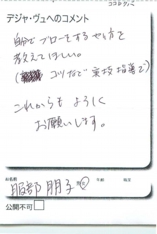 デジャ・ヴュへのコメント
自分でブローをするやり方を
教えてほしい。
(コツなど実技指導で)
これからもよろしく
お願いします。
お名前
服部朋子
公開不可